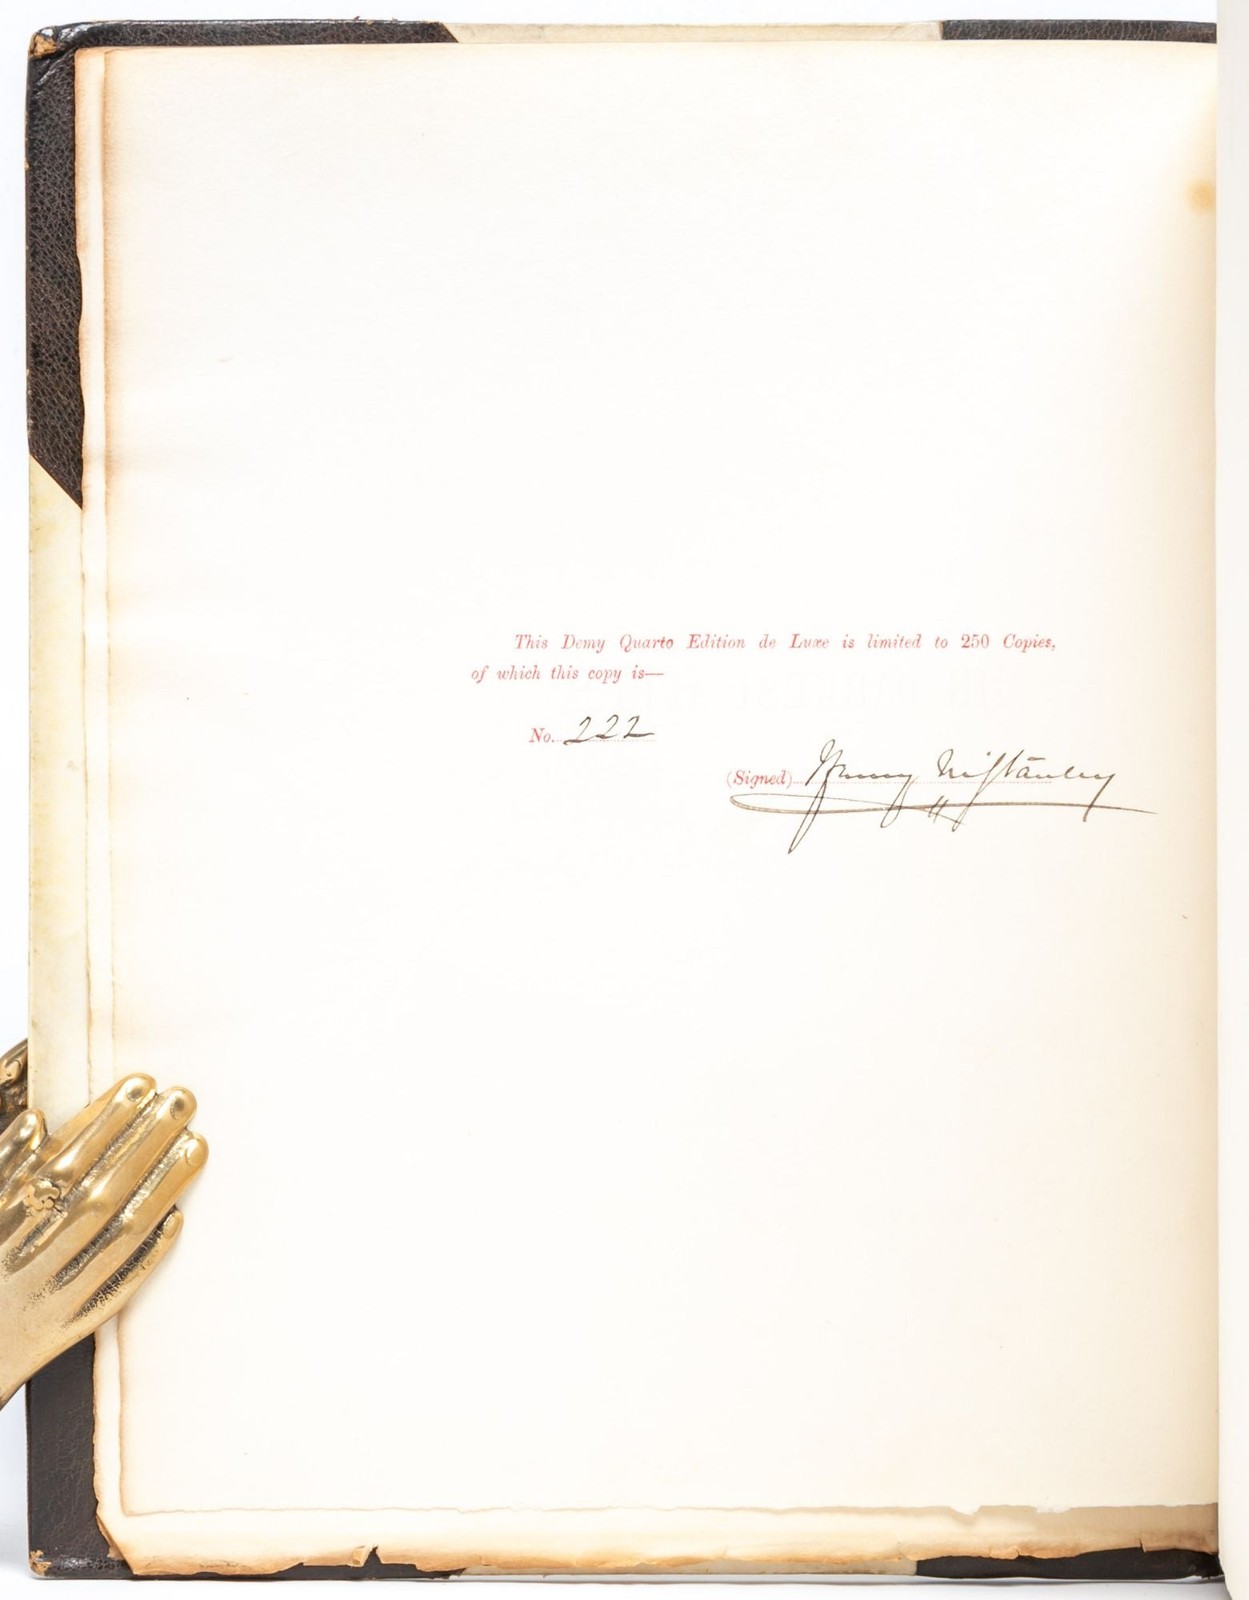 This Demy Quarto Edition de Luxe is limited to 250 Copies,
of which this copy is—
No. 222
(Signed) Henry M Stanley